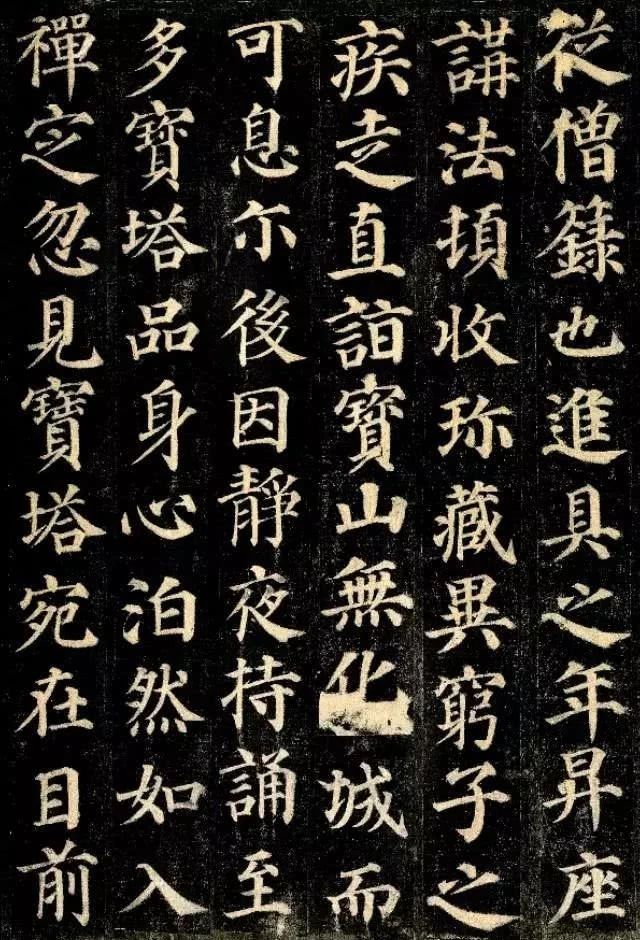 從僧籙也進具之年昇座
講法頓收珎藏異窮子之
疾走直詣寳山無化城而
可息尒後因靜夜持誦至
多寶塔品身心泊然如入
禪定忽見寶塔宛在目前